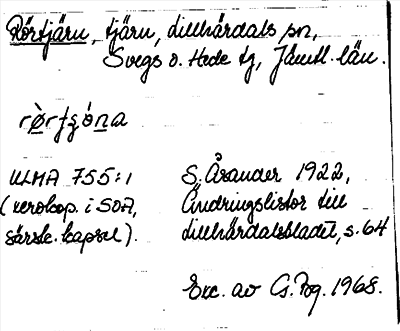 Rörtjärn, tjärn, Lillhärdals sn,
Svegs o. Hede tg, Jämtl. län.
ULMA 755:1
(xerokop. i SOA,
särsk. kapsel).
S. Åsander 1922,
Ändringslistor till
Lillhärdalsbladet, s. 64
Exc. av G. Pg. 1968.